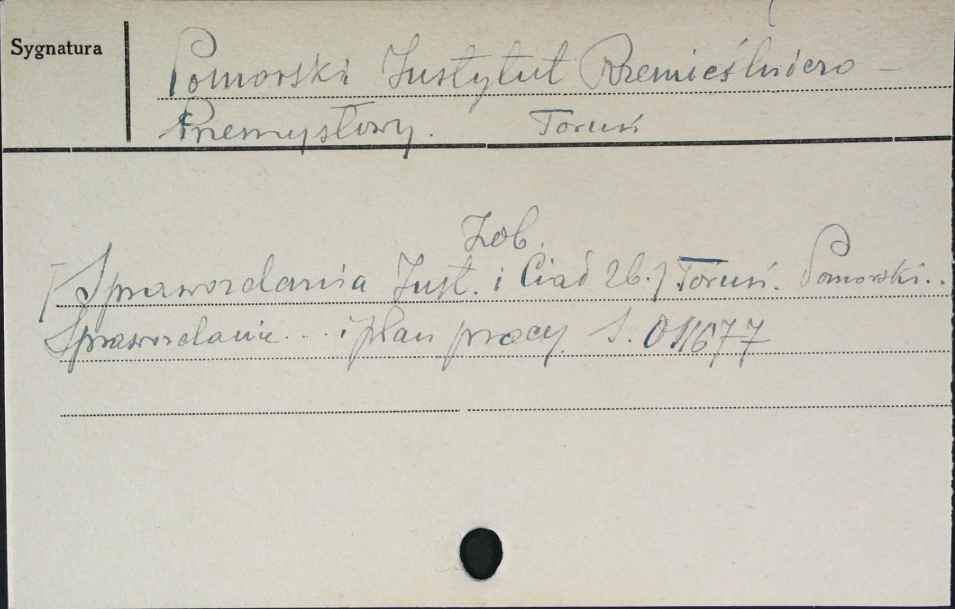 Sygnatura
Pomorski Instytut Rzemieślniczo -
Przemysłowy. Toruń
Zob.
[Sprawozdania Inst. i Ciał Zb.] Toruń. Pomorski..
Sprawozdanie... i plan pracy S. 011677